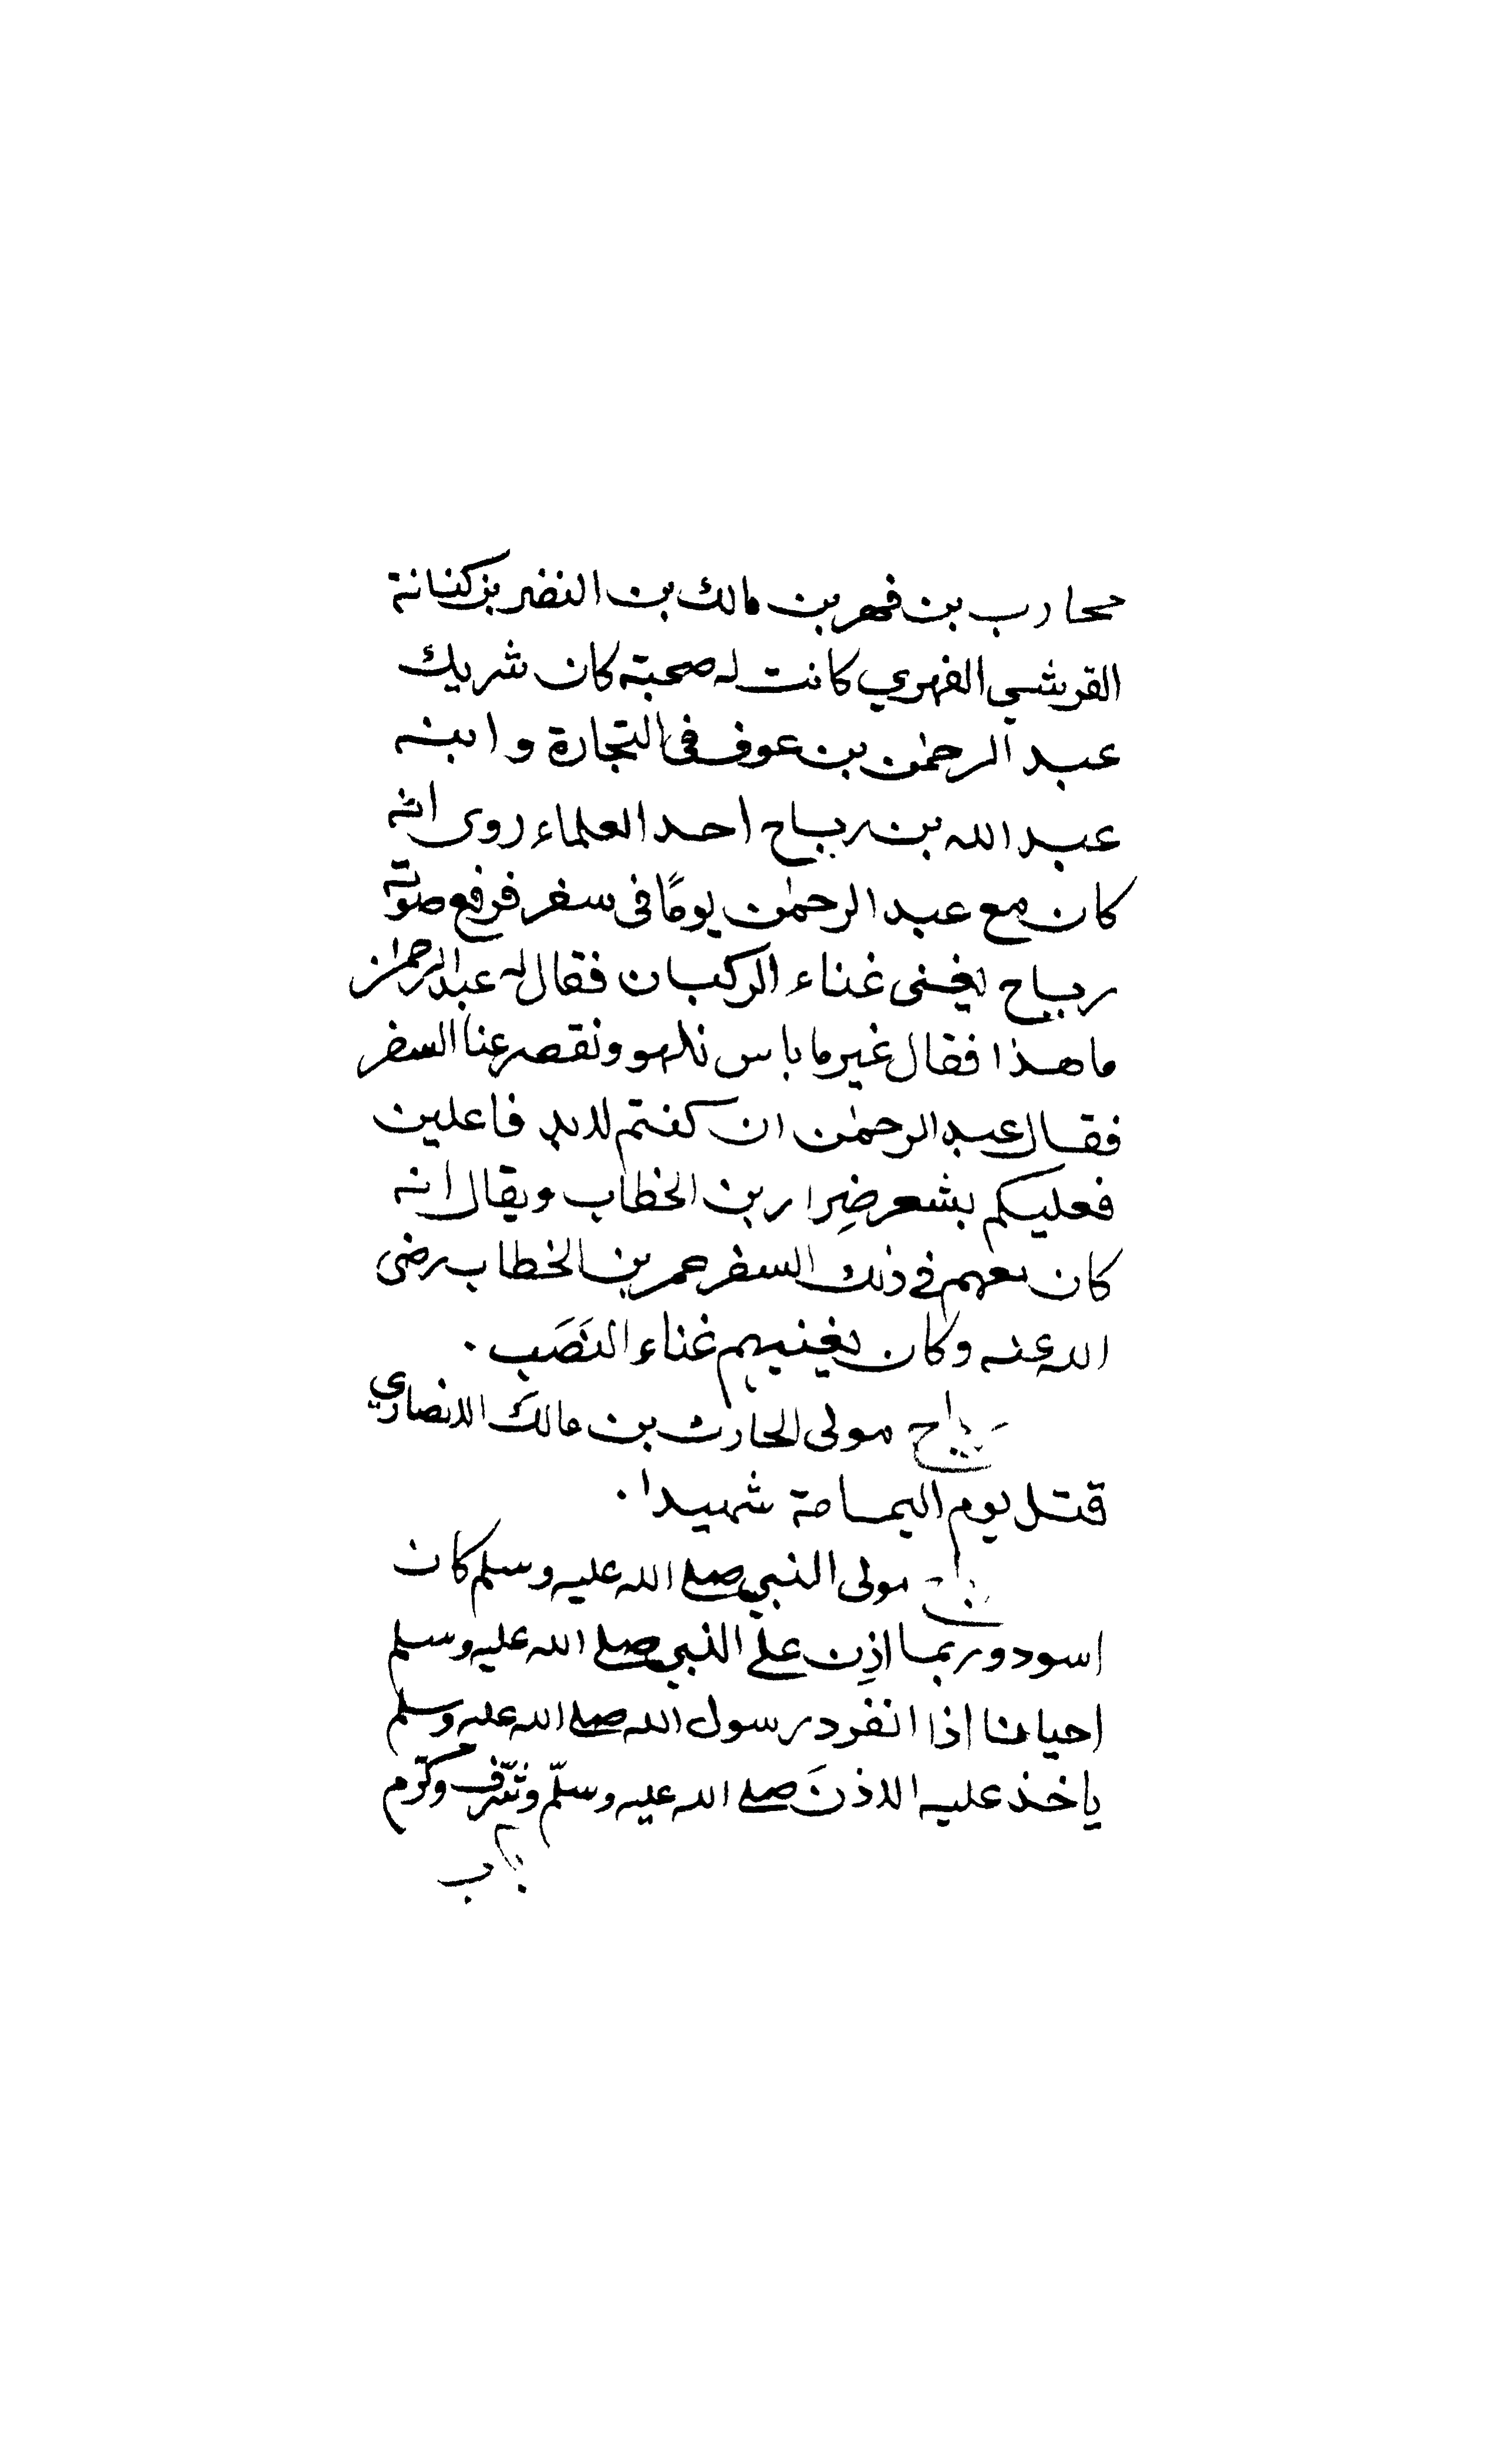 محارب بن فهر بن مالك بن النضر بن كنانة
القرشي الفهري كانت له صحبته كان شريك
عبد الرحمٰن بن عوف في التجارة وابنه
عبد الله بن رباح احد العلماء روى انه
كان مع عبد الرحمٰن يومًا في سفر فرفع صوته
رباح يغنى غناء الركبان فقال له عبد الرحمٰن
ما هذا فقال غير ما باس نلهو ونقصر عنا السفر
فقال عبد الرحمٰن ان كنتم لابد فاعلين
فعليكم بشعر ضِرار بن الخطاب ويقال انه
كان معهم في ذلك السفر عمر بن الخطاب رضى
الله عنه وكان يغنيهم غناء النَصَب .
رباح مولى الحارث بن مالك الانصاري
قتل يوم اليمامة شهيدا .
رباح مولى النبي صلى الله عليه وسلم كان
اسود وربما اذِن على النبي صلى الله عليه وسلم
احيانا اذا انفرد رسول الله صلى الله عليه وسلم
ياخذ عليه الاذنَ صلى الله عليه وسلّم وشرّف وكرّم
باب